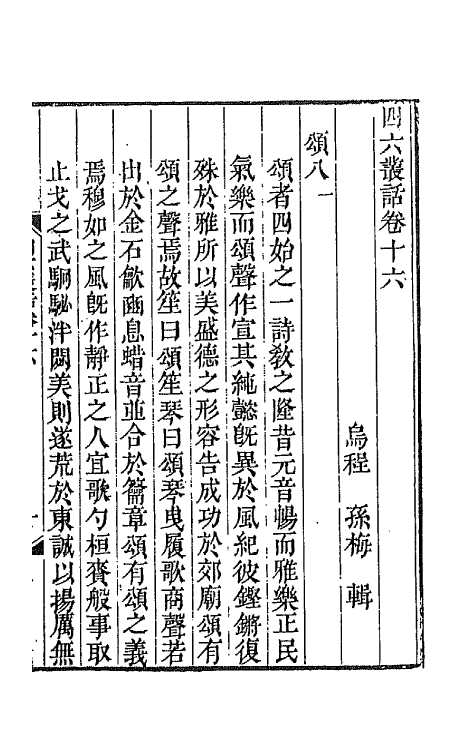 四六叢話卷十六
烏程　孫梅　輯
頌八
頌者四始之一詩敎之隆昔元音暢而雅樂正民
氣樂而頌聲作宣其純懿旣異於風紀彼鏗鏘復
殊於雅所以美盛德之形容告成功於郊廟頌有
頌之聲焉故笙曰頌笙琴曰頌琴曳履歌商聲若
出於金石龡豳息蜡音並合於籥章頌有頌之義
焉穆如之風旣作靜正之人宜歌勺桓賚般事取
止戈之武駉駜泮閟美則遂荒於東誠以揚厲無